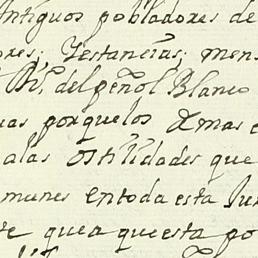 Antiguos pobladores de
ores; Yestancias; mens
del peñol Blanco
uas porquelos Xmas e
alas Ostilidades que
munes entoda esta Jur
e quea questa po